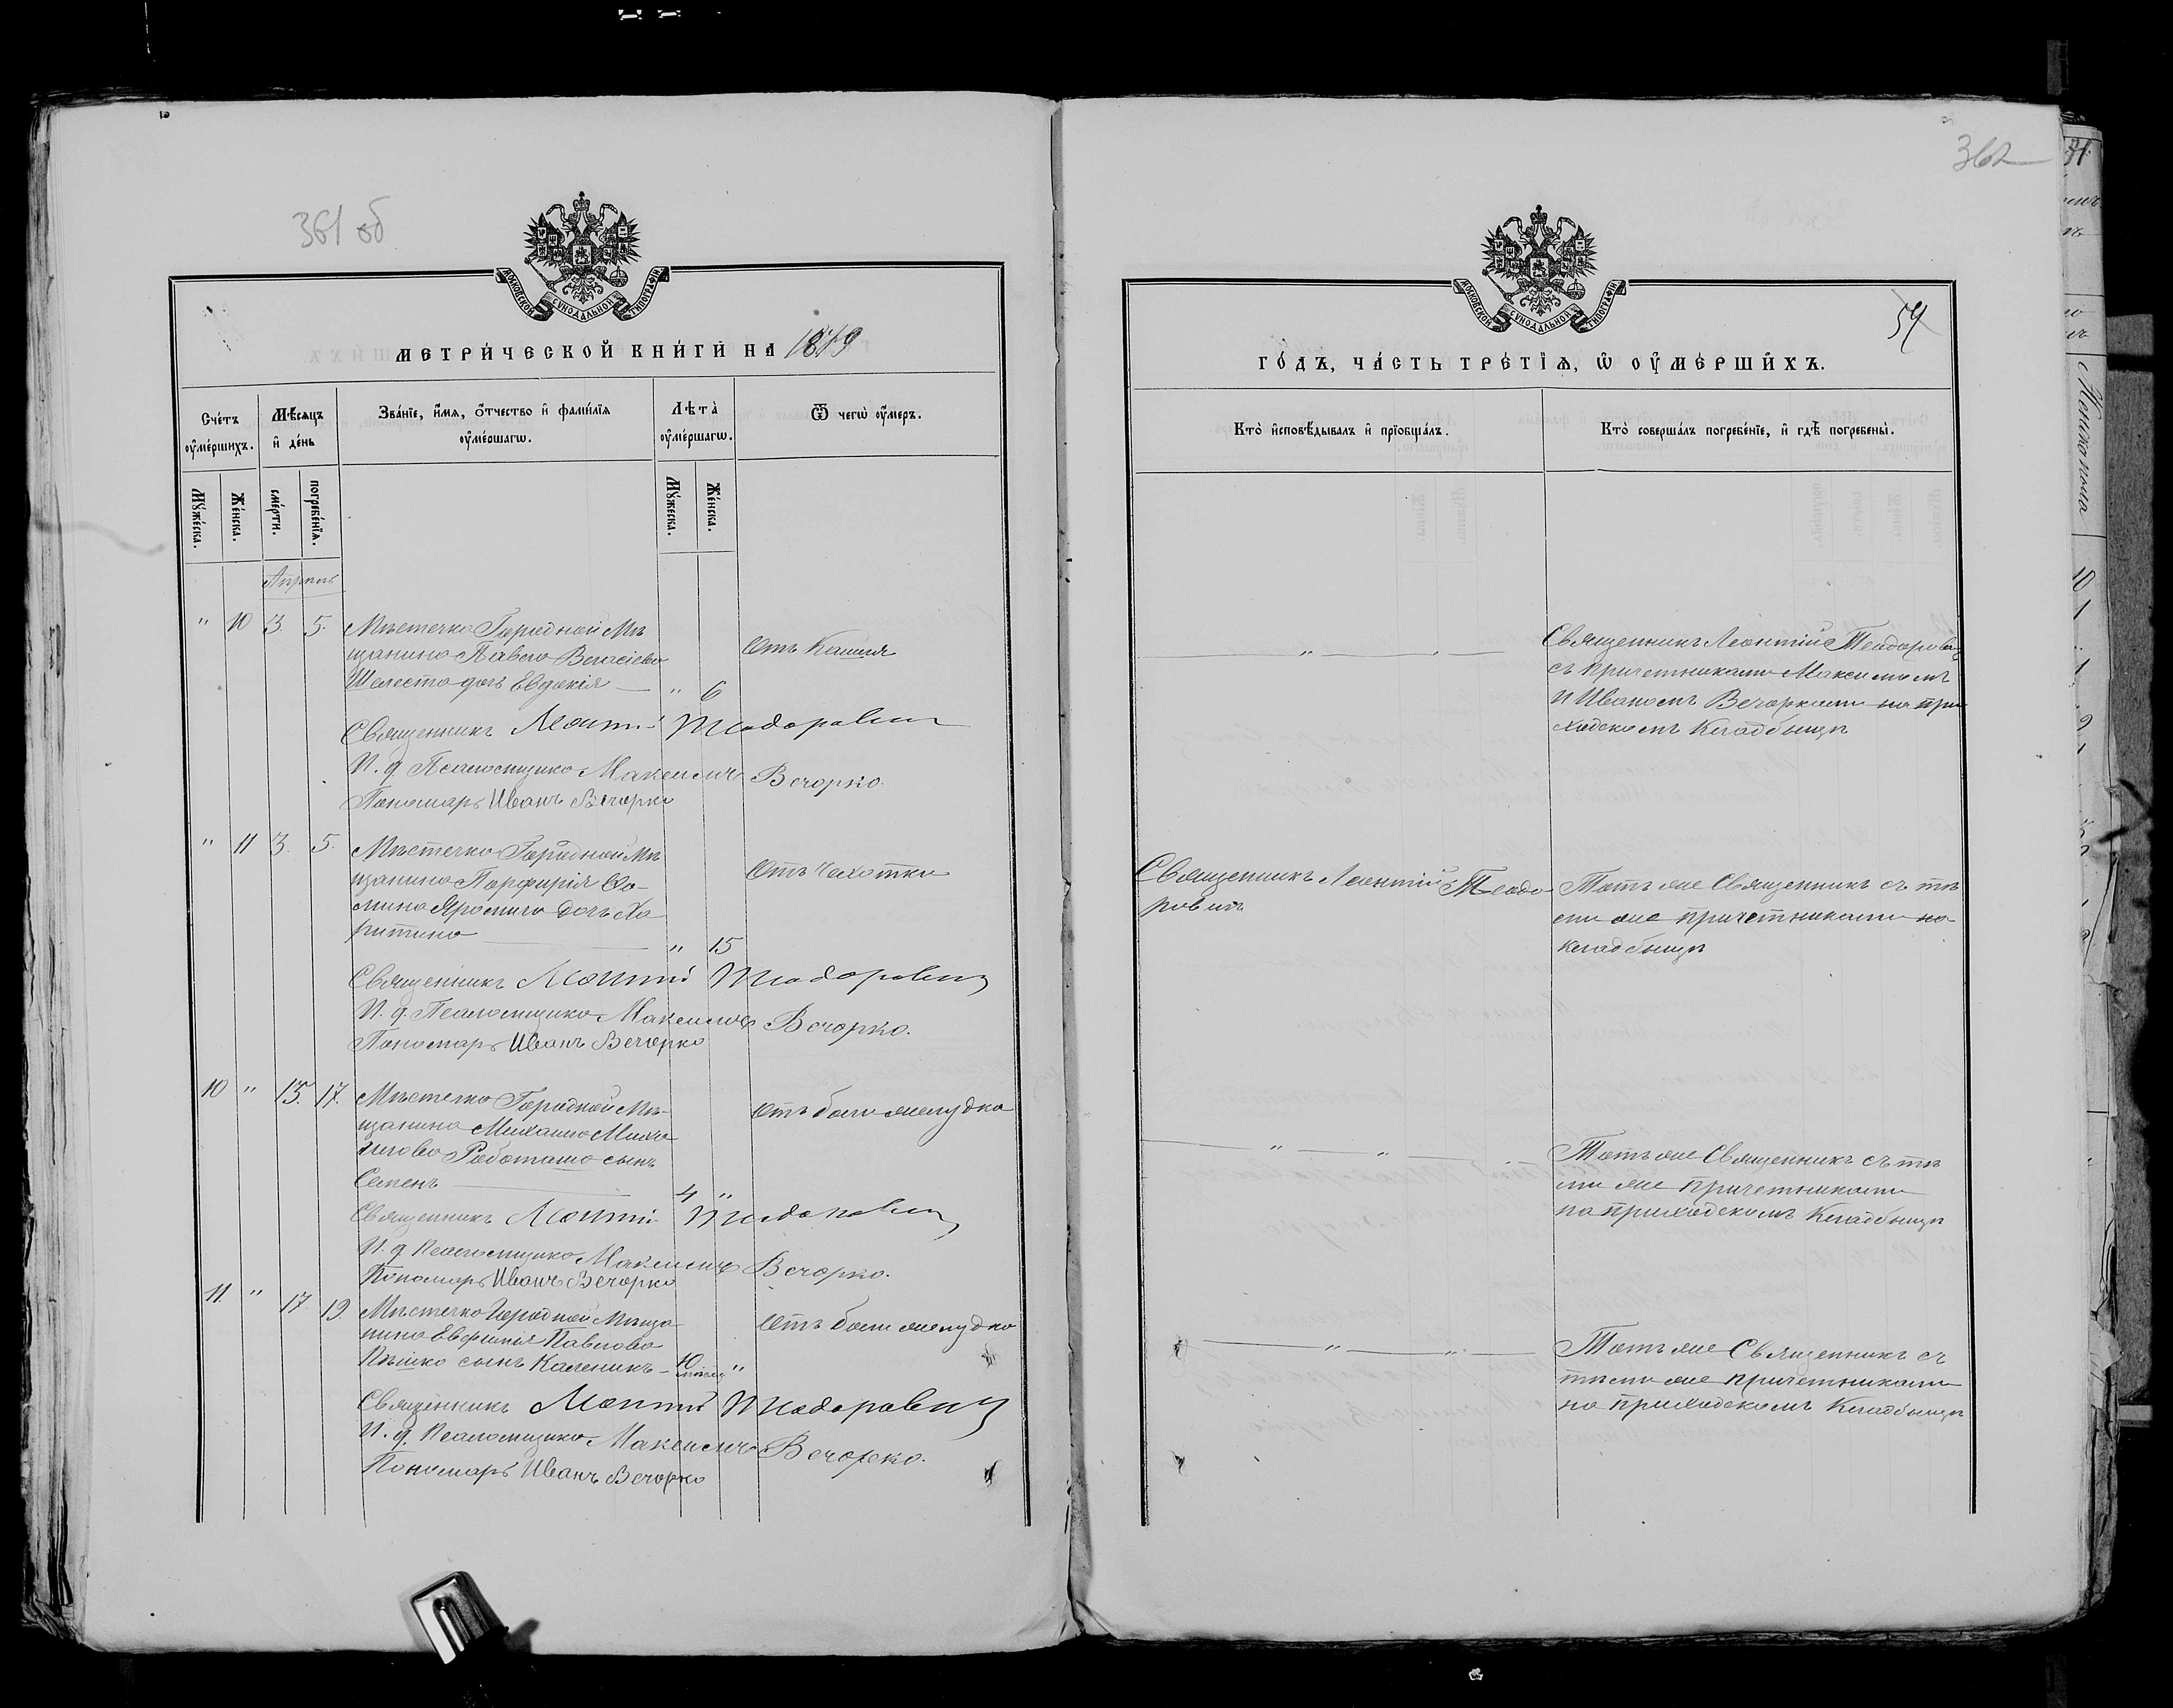 361 об
МОСКОВСКОЙ СУНОДАЛЬНОЙ ТИПОГРАФІИ
МЕТРИ́ЧЕСКОЙ КНИ́ГИ НА 1879
Сче́тъ оу҆ме́ршихъ.
Мѣ́сяцъ и҆ де́нь
Зва́нїе, и҆́мя, ѻ҆́тчество и҆ фами́лїя оу҆ме́ршагѡ.
Лѣ́та оу҆ме́ршагѡ.
Ѿ чегѡ̀ оу҆́меръ.
Мꙋ́жеска.
Же́нска.
сме́рти.
погребе́нїя.
Мꙋ́жеска.
Же́нска.
Апрель
" 10 3. 5. Мѣстечка Городной Мѣ
щанина Павла
Шелеста дочь Евдокія — " 6
Отъ Кашля
Священникъ Леонтій Теодоровичъ
И. д. Псаломщика Максимъ Вечорко.
Пономарь Иванъ Вечорко
" 11 3. 5. Мѣстечка Городной Мѣ
щанина Порфирія Ѳо-
мина дочь Ха
ритина — " 15
Отъ Чахотки
Священникъ Леонтій Теодоровичъ
И. д. Псаломщика Максимъ Вечорко.
Пономарь Иванъ Вечорко
10 " 15. 17. Мѣстечка Городной Мѣ-
щанина Михаила Миха
илова сынъ
Семенъ — 4 "
Отъ боли желудка
Священникъ Леонтій Теодоровичъ
И. д. Псаломщика Максимъ Вечорко.
Пономарь Иванъ Вечорко
11. " 17. 19. Мѣстечка Городной Мѣща
нина Евфимія Павлова
сынъ Каленикъ — 10 "
Отъ боли желудка
Священникъ Леонтій Теодоровичъ
И. д. Псаломщика Максимъ Вечорко.
Пономарь Иванъ Вечорко
362
МОСКОВСКОЙ СУНОДАЛЬНОЙ ТИПОГРАФІИ
54
ГО́ДЪ, ЧА́СТЬ ТРЕ́ТЇѦ, Ѡ ОУ҆МЕ́РШИХЪ.
Кто̀ и҆сповѣ́дывалъ и҆ прїобща́лъ.
Кто̀ соверша́лъ погребе́нїе, и҆ гдѣ̀ погребены̀.
Священникъ Леонтій Теодорович
съ причетниками Максимомъ
и Иваномъ Вечорками на при
ходскомъ Кладбищѣ
Священникъ Леонтій Теодо
ровичъ
Тотъ же Священникъ съ тѣ
ми же причетниками на
кладбищѣ
Тотъ же Священникъ съ тѣ
ми же причетниками
на приходскомъ Кладбищѣ
Тотъ же Священникъ съ
тѣми же причетниками
на приходскомъ Кладбищѣ